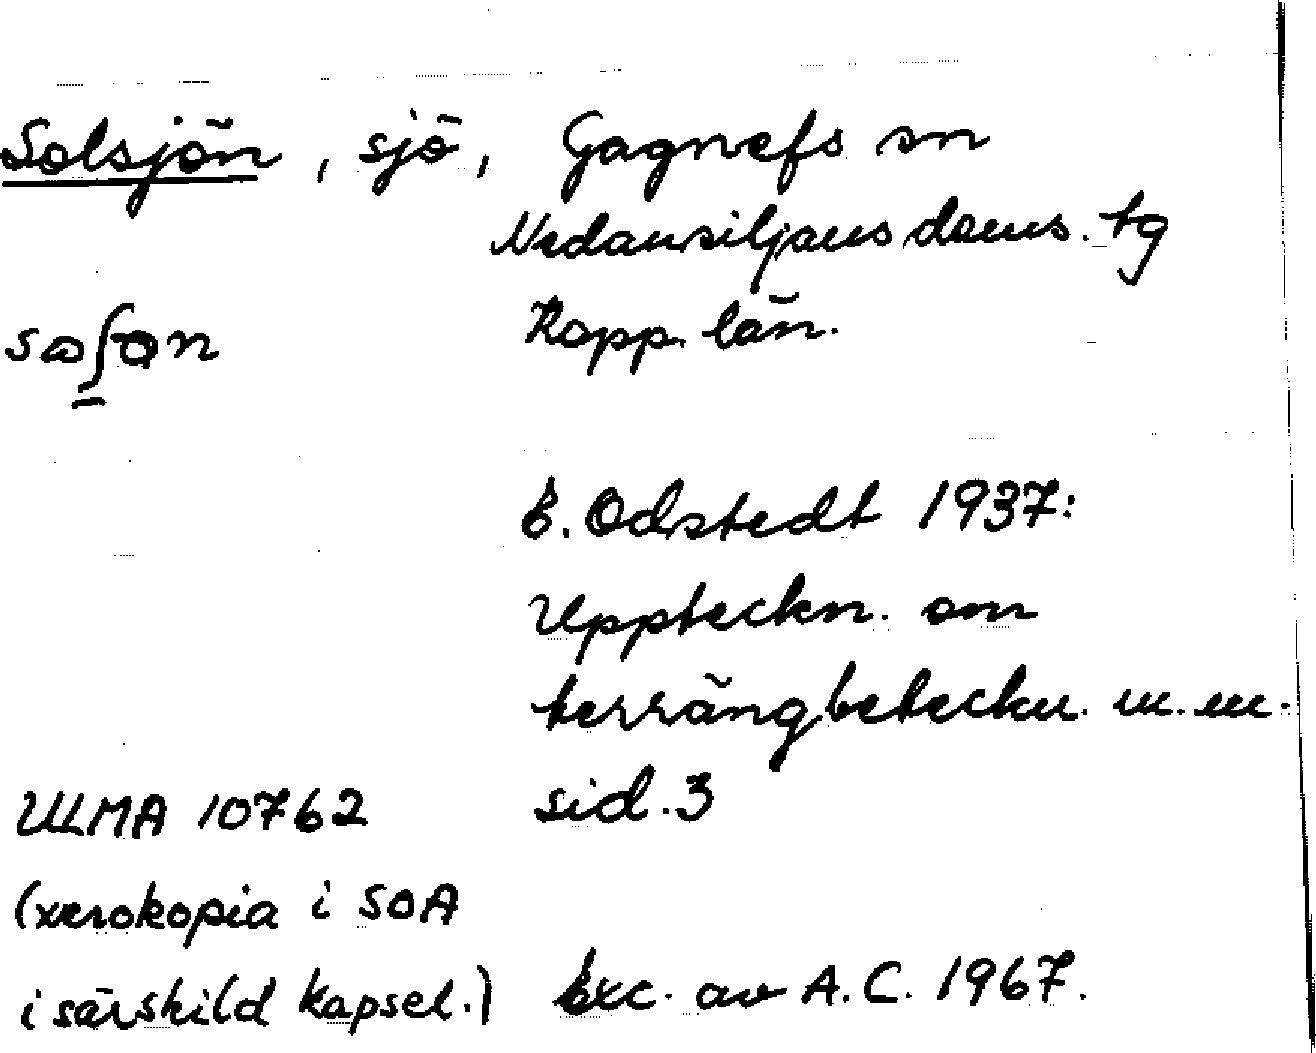 Solsjön, sjö, Gagnefs sn
Nedansiljans doms. tg
Kopp. län.
E. Odstedt 1937:
Uppteckn. om
terrängbeteckn. m.m.
sid. 3
ULMA 10762
(xerokopia i SOA
i särskild kapsel.)
Exc. av A.C. 1967.